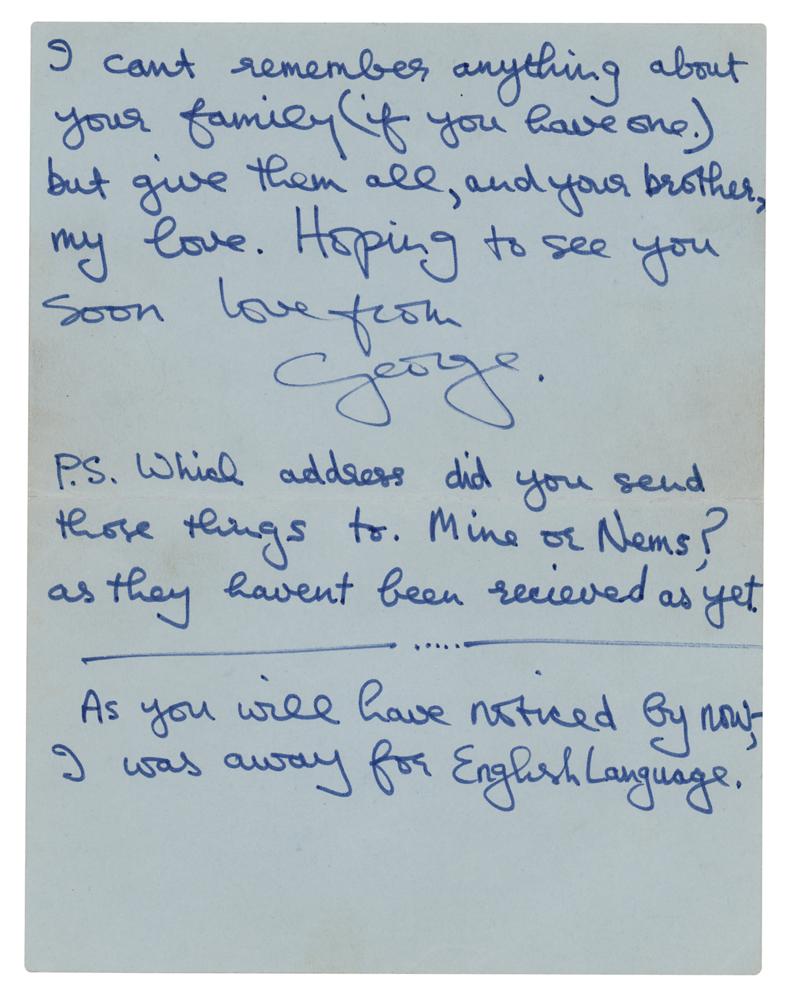 I cant remember anything about
your family (if you have one.)
but give them all, and your brother,
my love. Hoping to see you
soon love from
George.
P.S. Which address did you send
those things to. Mine or Nems?
as they havent been recieved as yet.
As you will have noticed by now,
I was away for English Language.